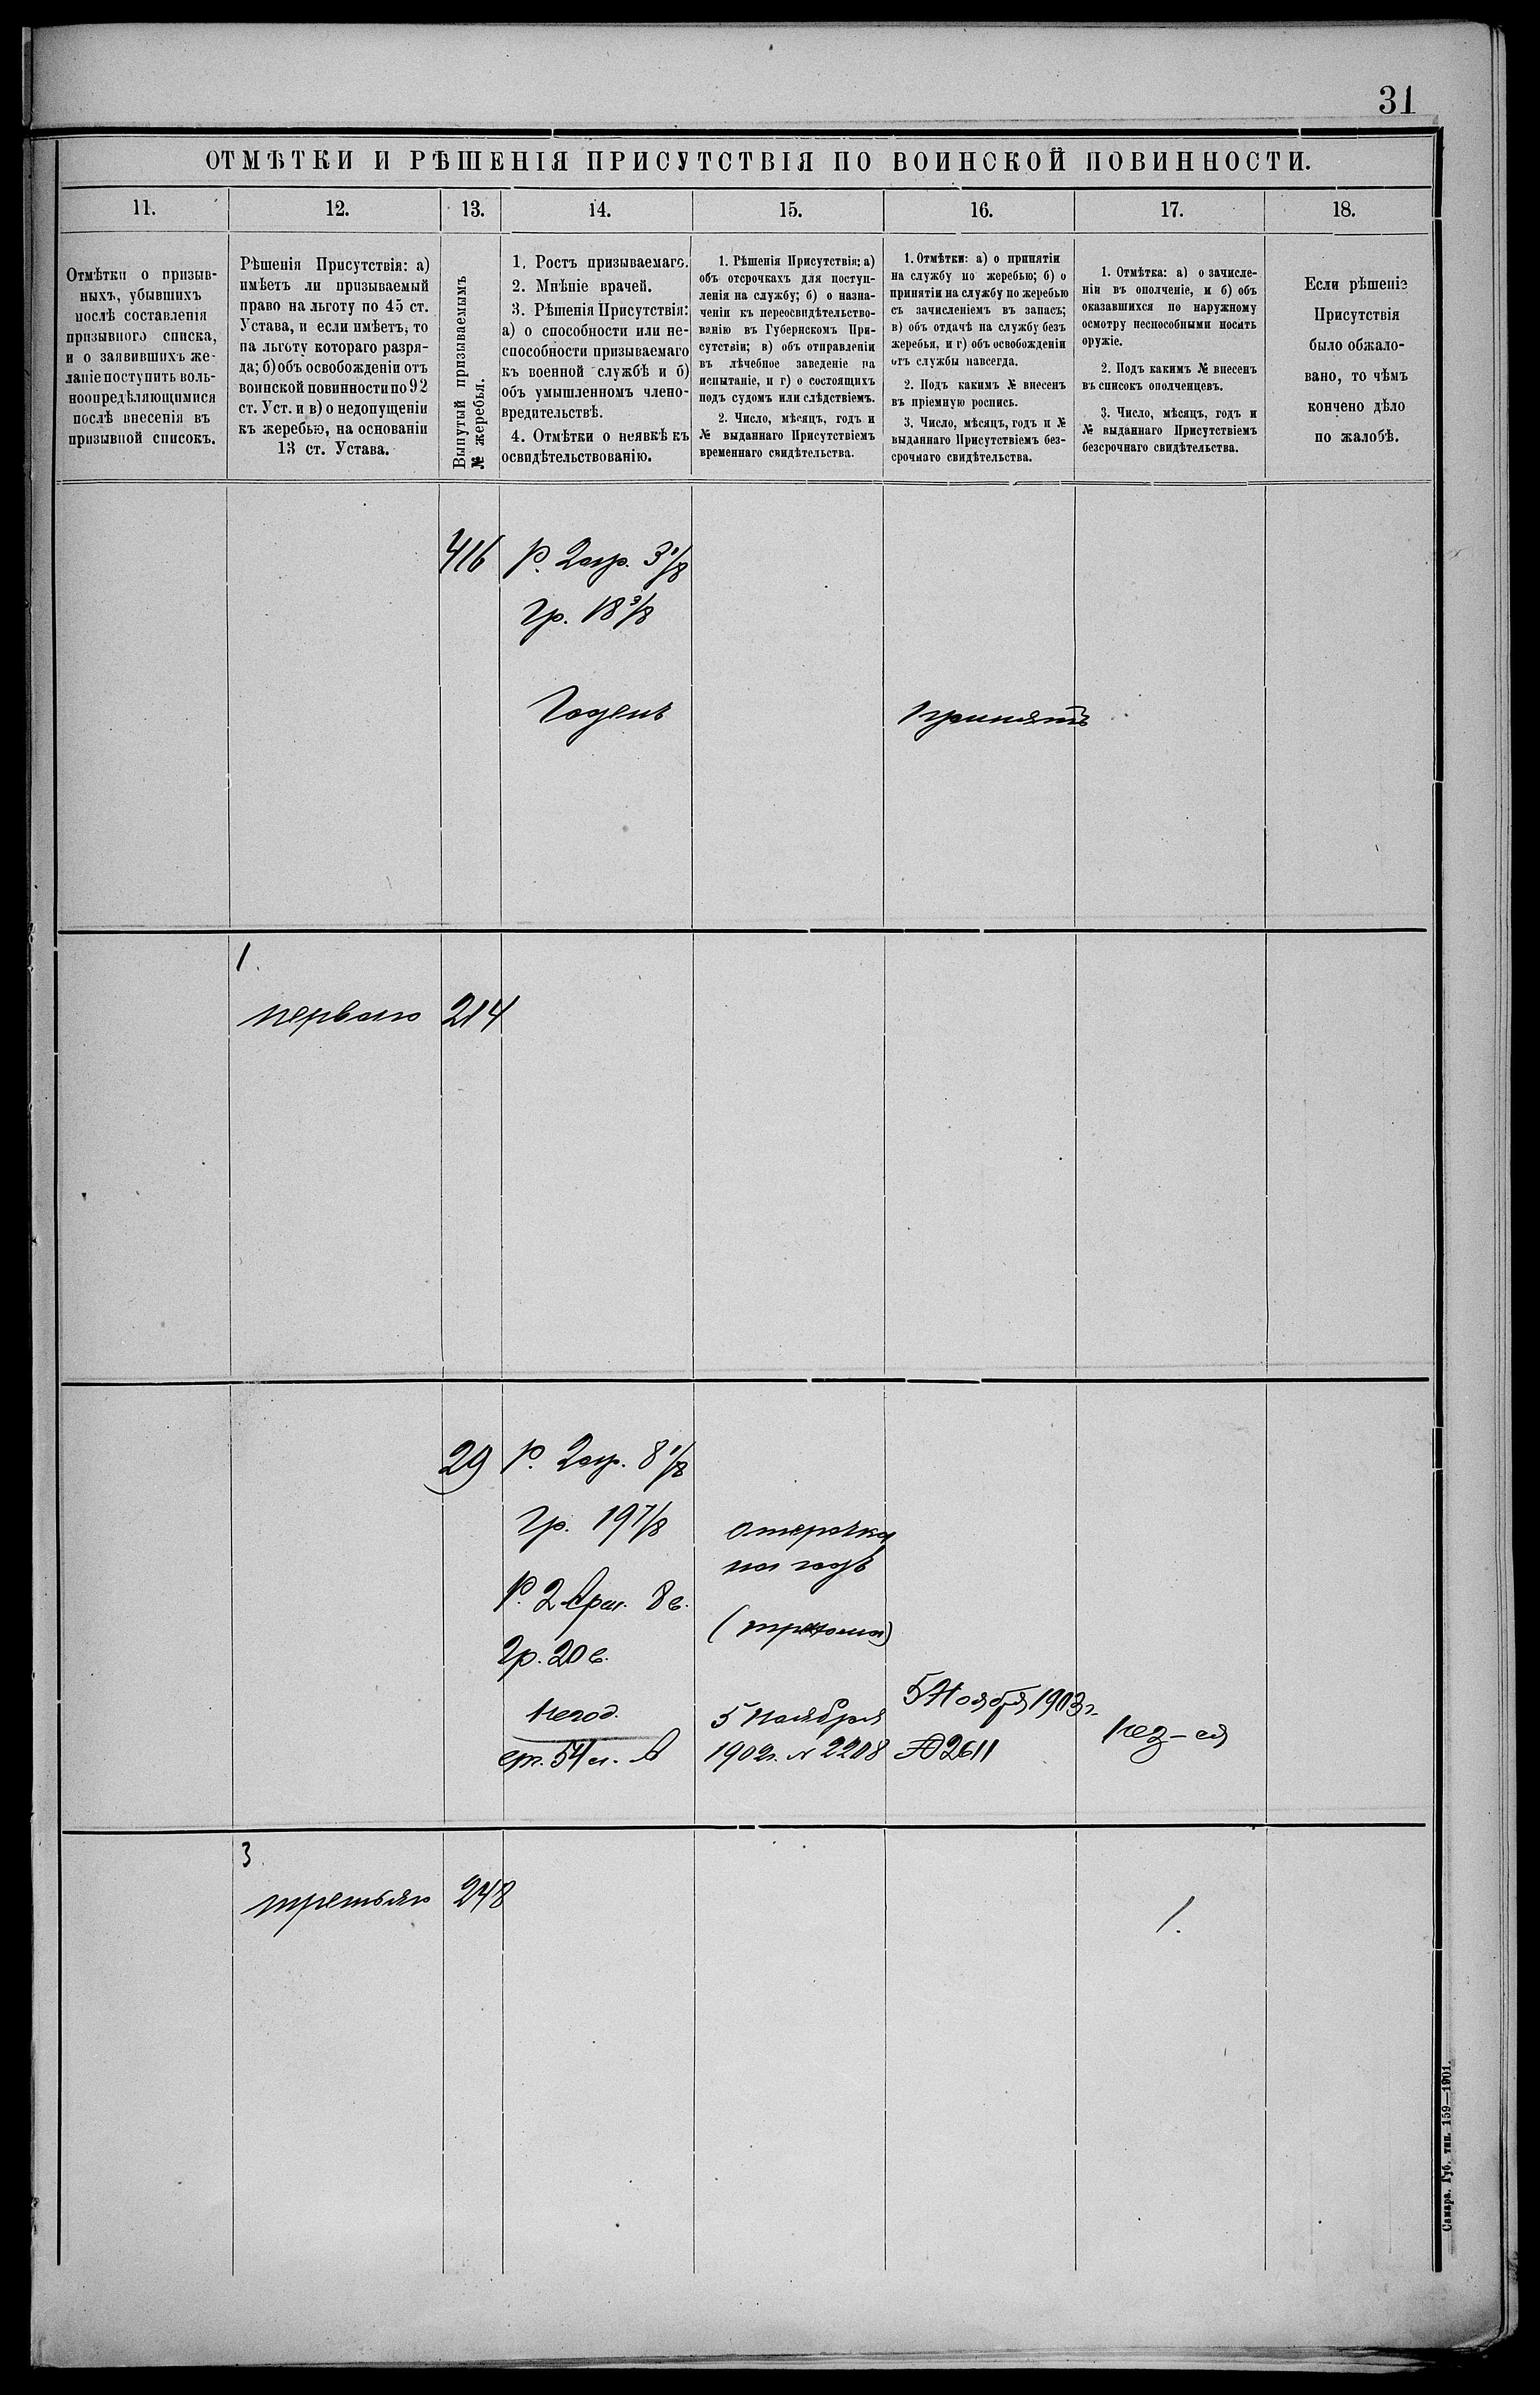 31
ОТМѢТКИ И РѢШЕНІЯ ПРИСУТСТВІЯ ПО ВОИНСКОЙ ПОВИННОСТИ.
11.
12.
13.
14.
15.
16.
17.
18.
Отмѣтки о призыв-
ныхъ, убывшихъ
послѣ составленія
призывного списка,
и о заявившихъ же-
ланіе поступить воль-
ноопредѣляющимися
послѣ внесенія въ
призывной списокъ.
Рѣшенія Присутствія: а)
имѣетъ ли призываемый
право на льготу по 45 ст.
Устава, и если имѣетъ, то
на льготу котораго разря-
да; б) объ освобожденіи отъ
воинской повинности по 92
ст. Уст. и в) о недопущеніи
къ жеребью, на основаніи
13 ст. Устава.
Вынутый призываемымъ
№ жеребья.
1. Ростъ призываемаго.
2. Мнѣніе врачей.
3. Рѣшенія Присутствія:
а) о способности или не-
способности призываемаго
къ военной службѣ и б)
объ умышленномъ члено-
вредительствѣ.
4. Отмѣтки о неявкѣ къ
освидѣтельствованію.
1. Рѣшенія Присутствія: а)
объ отсрочкахъ для поступ-
ленія на службу; б) о назна-
ченіи къ переосвидѣтельство-
ванію въ Губернскомъ При-
сутствіи; в) объ отправленіи
въ лѣчебное заведеніе на
испытаніе, и г) о состоящихъ
подъ судомъ или слѣдствіемъ.
2. Число, мѣсяцъ, годъ и
№ выданнаго Присутствіемъ
временнаго свидѣтельства.
1. Отмѣтки: а) о принятіи
на службу по жеребью; б) о
принятіи на службу по жеребью
съ зачисленіемъ въ запасъ;
в) объ отдачѣ на службу безъ
жеребья, и г) объ освобожденіи
отъ службы навсегда.
2. Подъ какимъ № внесенъ
въ пріемную роспись.
3. Число, мѣсяцъ, годъ и №
выданнаго Присутствіемъ без-
срочнаго свидѣтельства.
1. Отмѣтка: а) о зачисле-
ніи въ ополченіе, и б) объ
оказавшихся по наружному
осмотру неспособными носить
оружіе.
2. Подъ какимъ № внесенъ
въ списокъ ополченцевъ.
3. Число, мѣсяцъ, годъ и
№ выданнаго Присутствіемъ
безсрочнаго свидѣтельства.
Если рѣшеніе
Присутствія
было обжало-
вано, то чѣмъ
кончено дѣло
по жалобѣ.
416
Р. 2 ар. 3 1/8
Гр. 18 3/8
Годенъ
принятъ
1.
перваго
214
29
Р. 2 ар. 8 1/8
Гр. 19 7/8
Р. 2 Арш. 8 в.
Гр. 20 в.
Негод.
ст. 54 л. А
отсрочка
на годъ
(трахома)
5 Ноября
1902 г. № 2208
5 Ноября 1903 г.
№ 2611
3
третьяго
248
1.
Самара. Губ. тип. 159—1901.